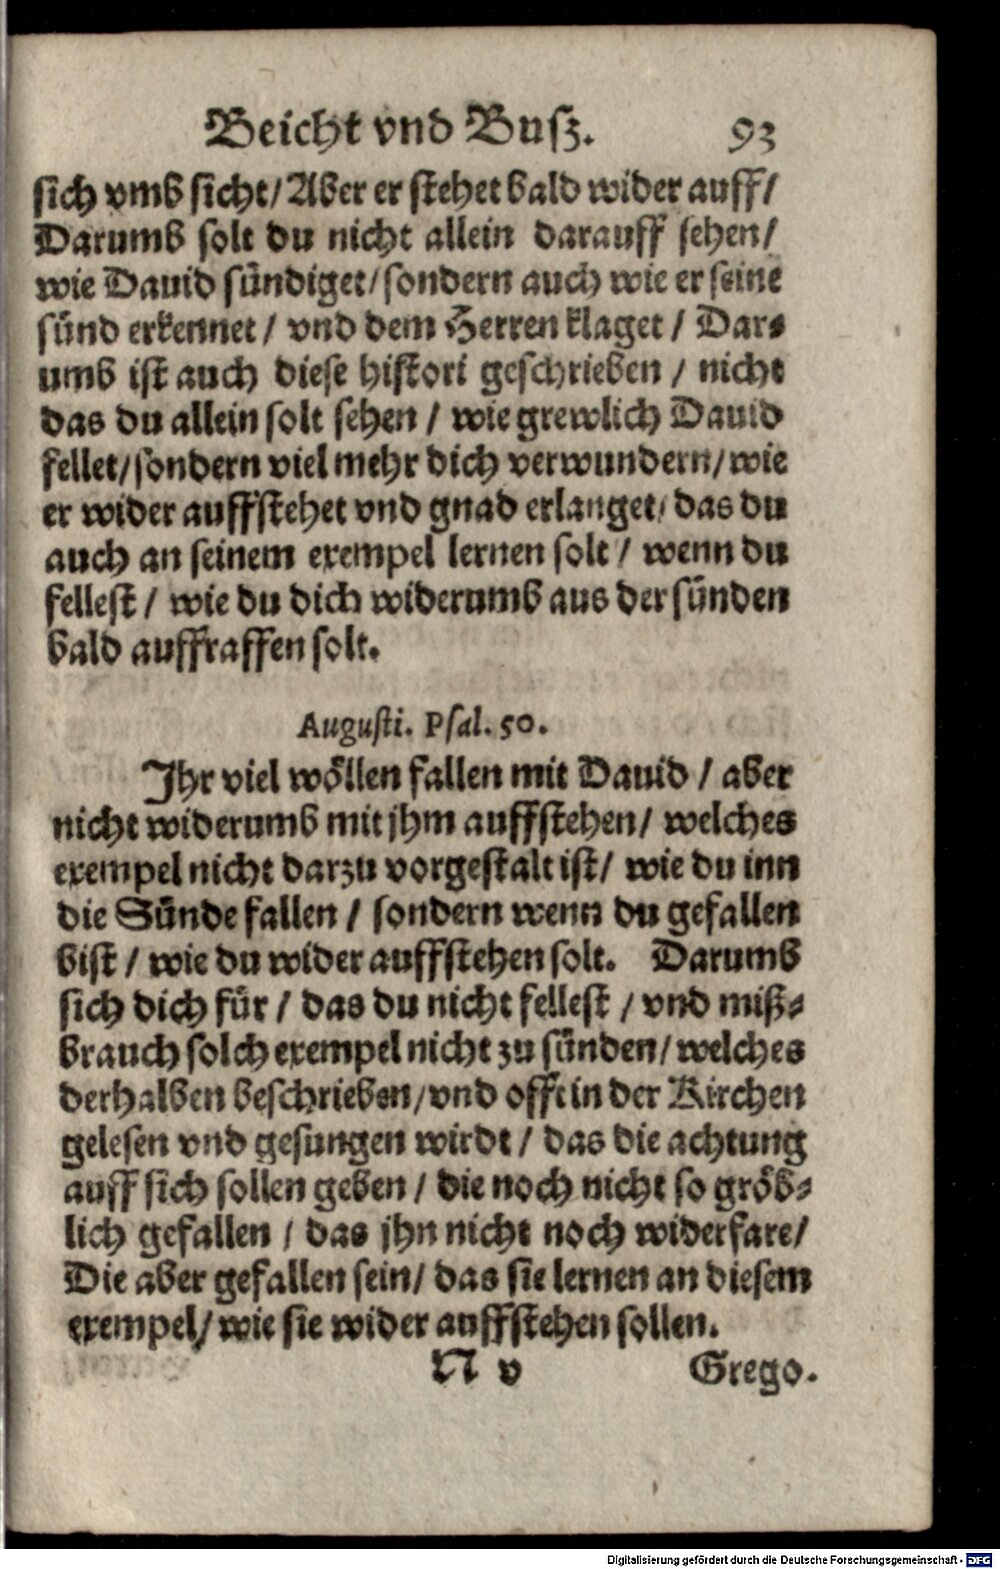 Beicht vnd Busz. 93
sich vmb sicht/ Aber er stehet bald wider auff/
Darumb solt du nicht allein darauff sehen/
wie Dauid sündiget/ sondern auch wie er seine
sünd erkennet/ vnd dem Herren klaget/ Dar⸗
umb ist auch diese histori geschrieben/ nicht
das du allein solt sehen/ wie grewlich Dauid
fellet/ sondern viel mehr dich verwundern/ wie
er wider auffstehet vnd gnad erlanget/ das du
auch an seinem exempel lernen solt/ wenn du
fellest/ wie du dich widerumb aus der sünden
bald auffraffen solt.
Augusti. Psal. 50.
Ihr viel wöllen fallen mit Dauid/ aber
nicht widerumb mit jhm auffstehen/ welches
exempel nicht darzu vorgestalt ist/ wie du inn
die Sünde fallen/ sondern wenn du gefallen
bist/ wie du wider auffstehen solt. Darumb
sich dich für/ das du nicht fellest/ vnd miß⸗
brauch solch exempel nicht zu sünden/ welches
derhalben beschrieben/ vnd offt in der Kirchen
gelesen vnd gesungen wirdt/ das die achtung
auff sich sollen geben/ die noch nicht so gröb⸗
lich gefallen/ das jhn nicht noch widerfare/
Die aber gefallen sein/ das sie lernen an diesem
exempel/ wie sie wider auffstehen sollen.
N v Grego.
Digitalisierung gefördert durch die Deutsche Forschungsgemeinschaft - DFG